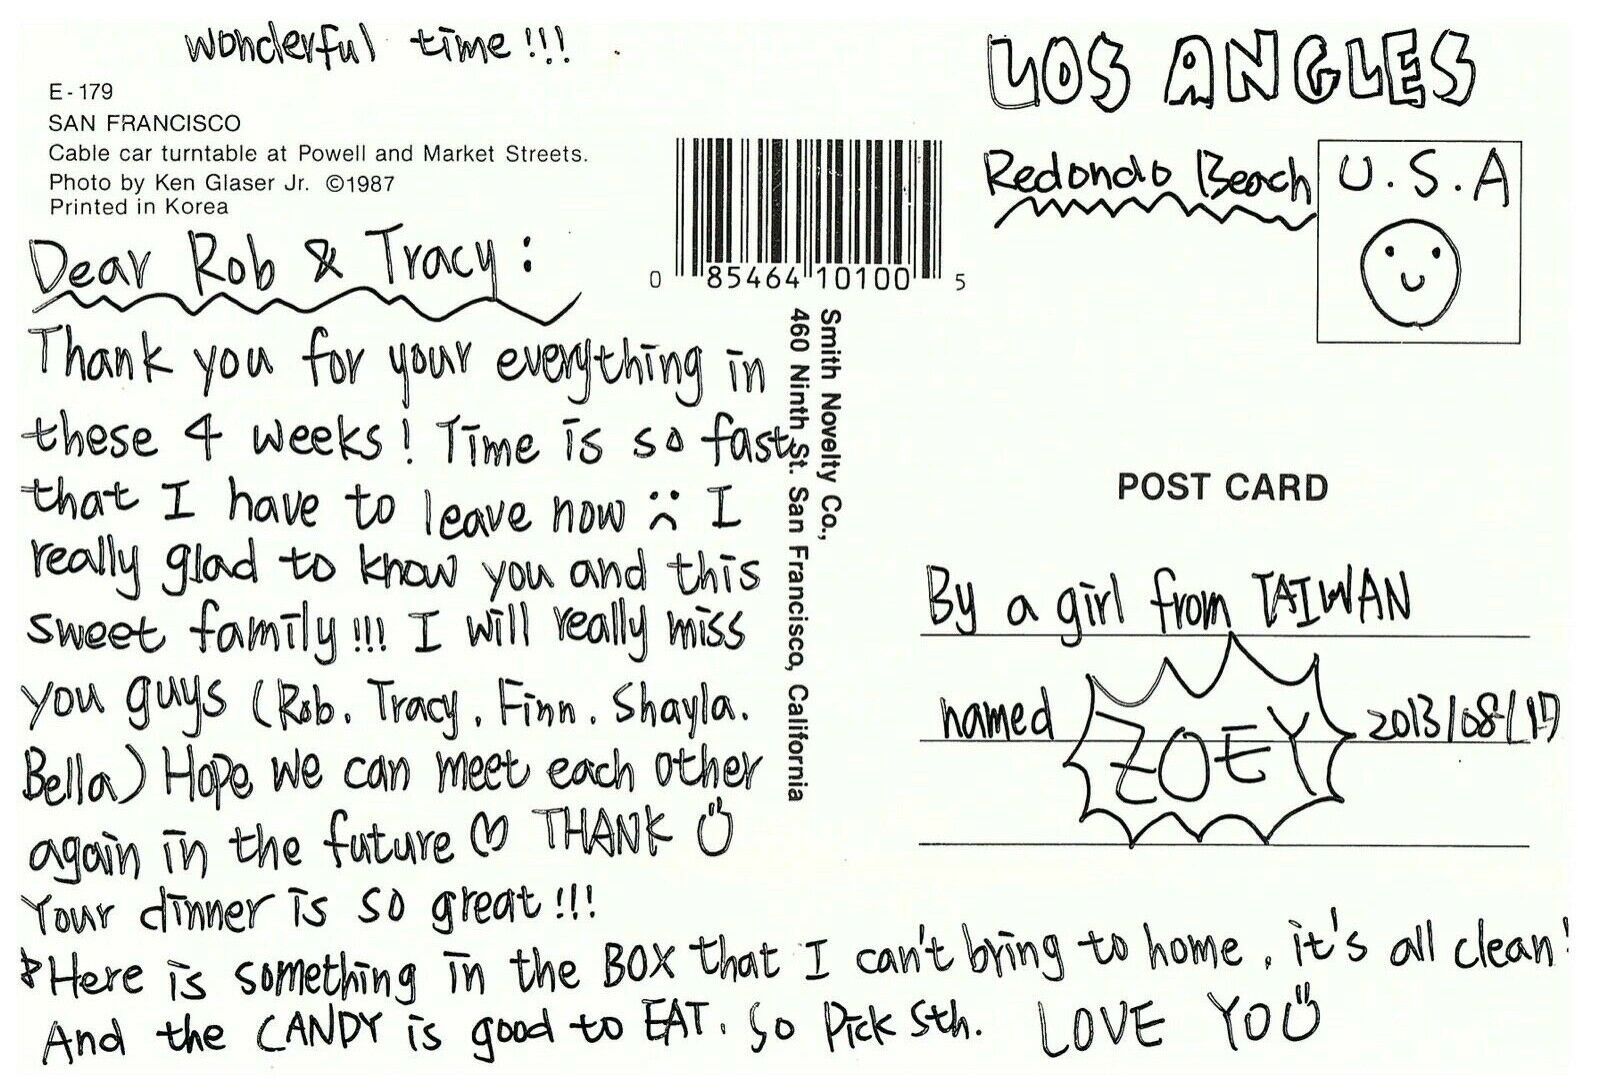 wonderful time!!!
E-179
SAN FRANCISCO
Cable car turntable at Powell and Market Streets.
Photo by Ken Glaser Jr. ©1987
Printed in Korea
Dear Rob & Tracy:
Thank you for your everything in
these 4 weeks! Time is so fast
that I have to leave now :( I
really glad to know you and this
sweet family!!! I will really miss
you guys (Rob. Tracy. Finn. Shayla.
Bella) Hope we can meet each other
again in the future ♡ THANK Ü
Your dinner is so great!!!
Here is something in the BOX that I can't bring to home. it's all clean!
And the CANDY is good to EAT. So Pick sth. LOVE YOÜ
0 85464 10100 5
Smith Novelty Co.,
460 Ninth St. San Francisco, California
LOS ANGLES
Redondo Beach
U.S.A
POST CARD
By a girl from TAIWAN
named ZOEY 2013/08/17